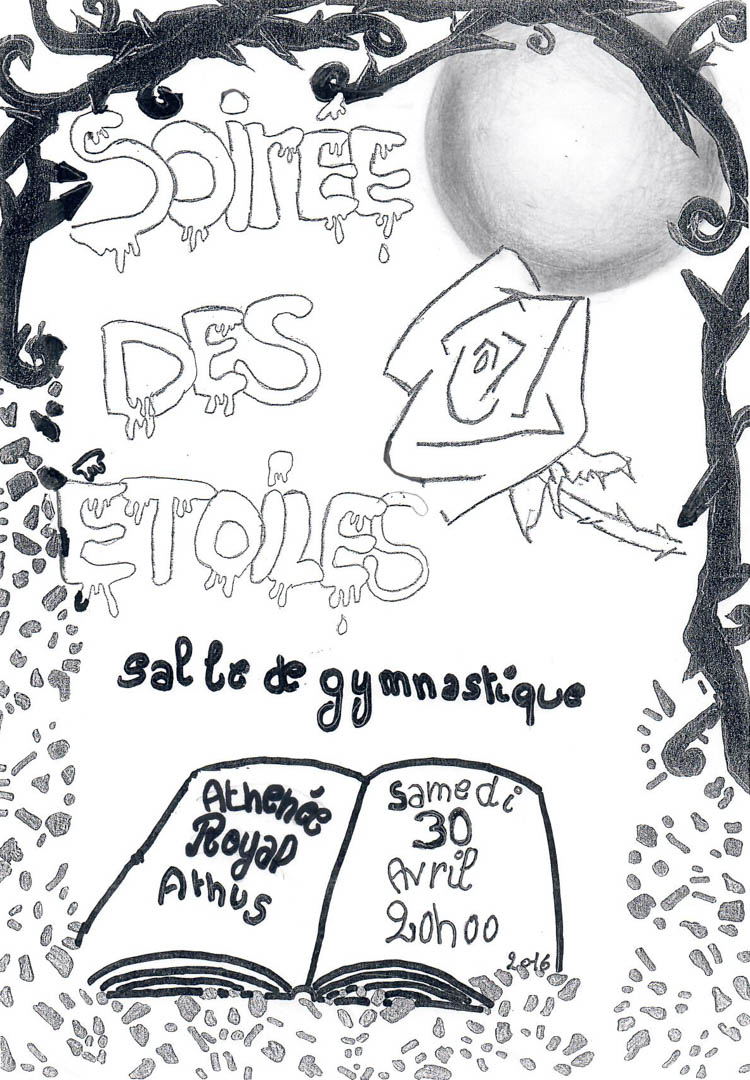 SOIRÉE
DES
ETOILES
Salle de gymnastique
Athenée
Royal
Athus
Samedi
30
Avril
20h00
2016